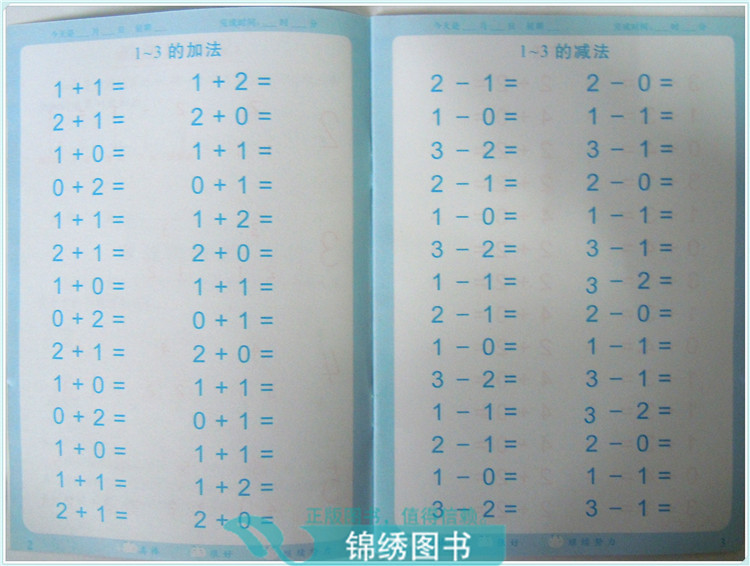 今天是 月 日 星期 完成时间: 时 分
1~3 的加法
1 + 1 = 1 + 2 =
2 + 1 = 2 + 0 =
1 + 0 = 1 + 1 =
0 + 2 = 0 + 1 =
1 + 1 = 1 + 2 =
2 + 1 = 2 + 0 =
1 + 0 = 1 + 1 =
0 + 2 = 0 + 1 =
2 + 1 = 2 + 0 =
1 + 0 = 1 + 1 =
0 + 2 = 0 + 1 =
1 + 0 = 1 + 1 =
1 + 1 = 1 + 2 =
2 + 1 = 2 + 0 =
2
今天是 月 日 星期 完成时间: 时 分
1~3 的减法
2 − 1 = 2 − 0 =
1 − 0 = 1 − 1 =
3 − 2 = 3 − 1 =
2 − 1 = 2 − 0 =
1 − 0 = 1 − 1 =
3 − 2 = 3 − 1 =
1 − 1 = 3 − 2 =
2 − 1 = 2 − 0 =
1 − 0 = 1 − 1 =
3 − 2 = 3 − 1 =
1 − 1 = 3 − 2 =
2 − 1 = 2 − 0 =
1 − 0 = 1 − 1 =
3 − 2 = 3 − 1 =
继续努力
正版图书，值得信赖。
锦绣图书